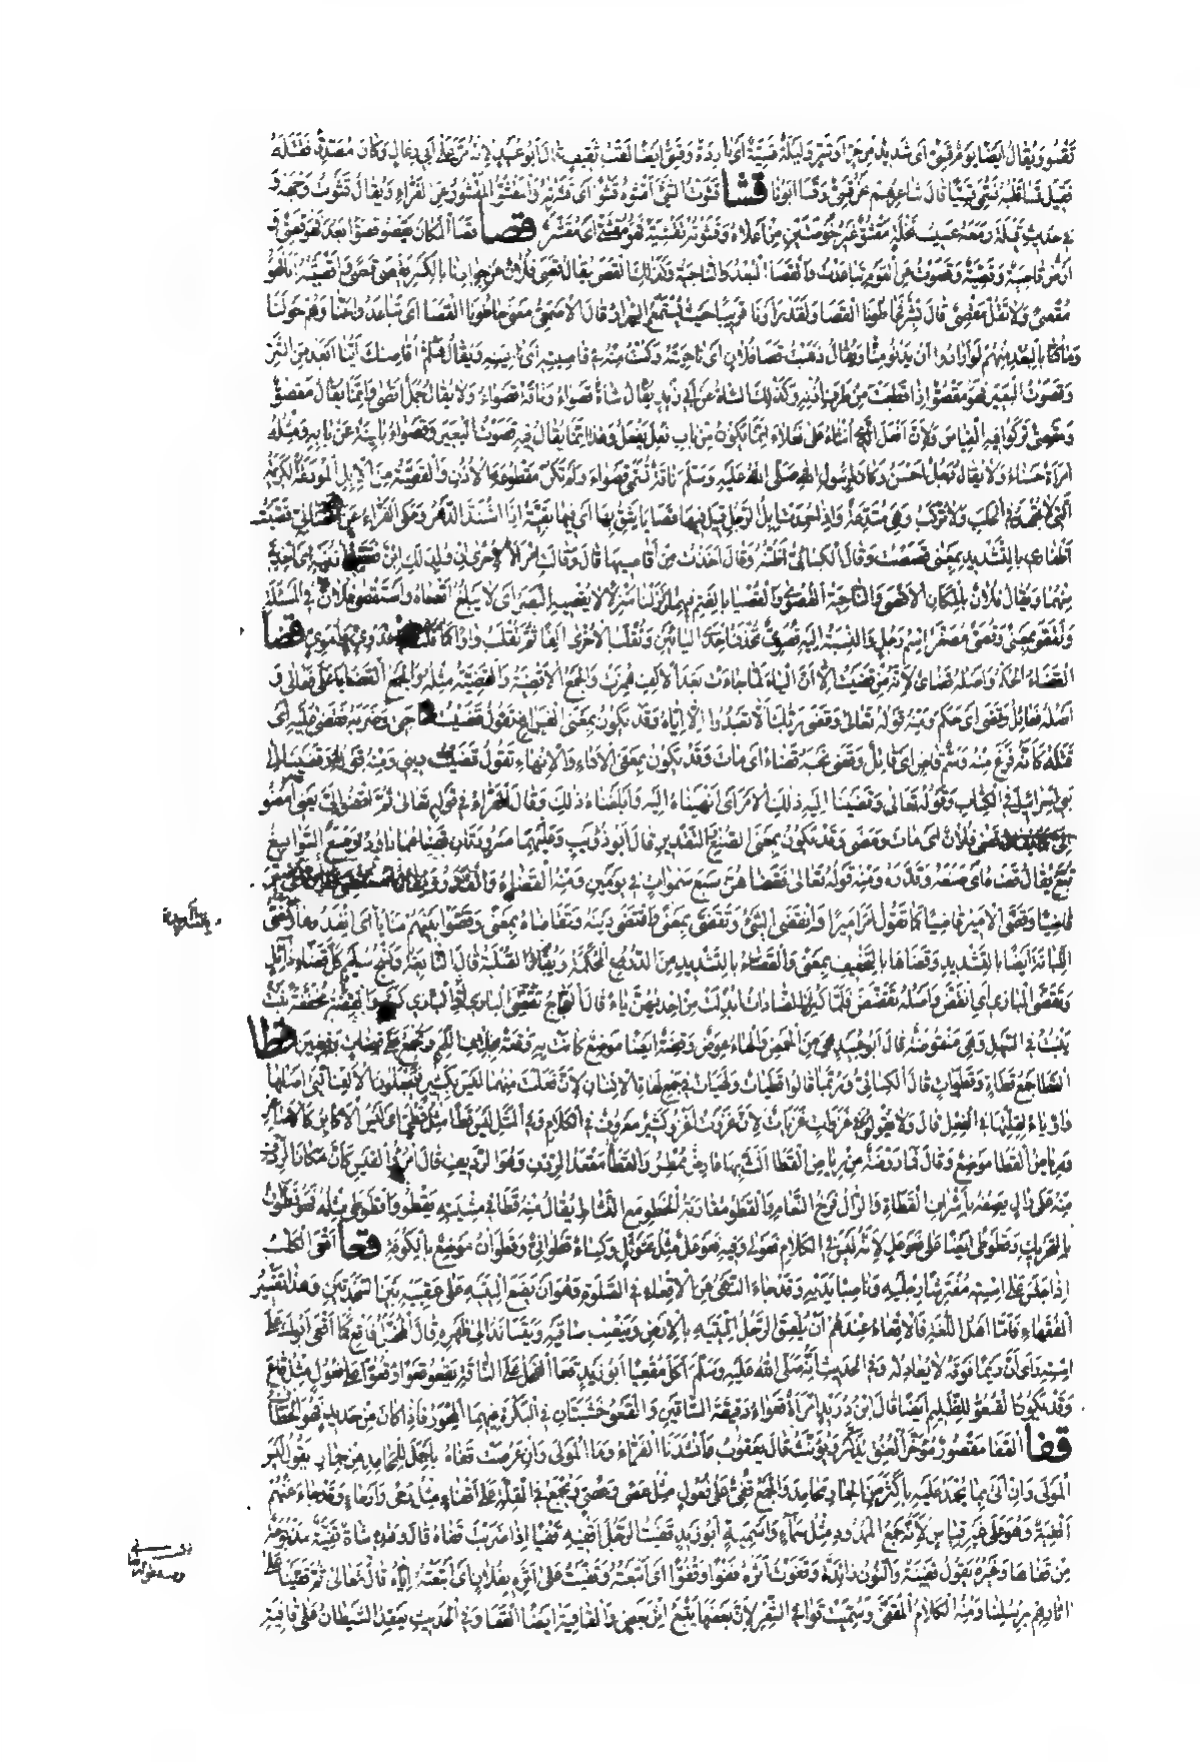 تقسو ويقال ايضا يوم قسي اي شديد من حر او شر وليلة قسية اي باردة وقسي ايضا لقب ثقيف قال ابو عبيد لانه مر على ابي رغال وكان مصدقا فقتله
فقيل قسا قلبه فسمي قسيا قال شاعرهم نحن قسي وقسا ابونا قشا قشوت الشيء اقشوه قشوا اي قشرته والمقشو المقشور عن الفراء ويقال قشوت وجهه و
في حديث قيلة ومعه عسيب نخلة مقشو غير خوصتين من اعلاه وقشوته تقشية فهو مقشى اي مقشر قصا قصا المكان يقصو قصوا بعد فهو قصي و
ارض قاصية وقصية وقصوت عن القوم تباعدت والقصا البعد والناحية وكذلك القصى يقال قصي فلان عن جوارنا بالكسر يقصى قصى واقصيته انا فهو
مقصى ولا تقل مقصي قال بشر فحاطونا القصا ولقد راونا قريبا حيث يستمع السرار قال الاصمعي معنى حاطونا القصا اي تباعدوا عنا وهم حولنا
وما كنا بالبعد منهم لو ارادوا ان يدنوا منا ويقال ذهبت قصا فلان اي ناحيته وكنت منه في قاصيته اي ناحيته ويقال هلم اقاصك اينا ابعد من الشر
وقصوت البعير فهو مقصو اذا قطعت من طرف اذنه وكذلك الشاة عن ابي زيد يقال شاة قصواء وناقة قصواء ولا يقال جمل اقصى وانما يقال مقصو
ومقصى تركوا فيه القياس ولان افعل الذي انثاه على فعلاء انما تكون من باب فعل يفعل وهذا انما يقال فيه قصوت البعير وقصواء بائنة عن بابه ومثله
امراة حسناء ولا يقال رجل احسن وكان لرسول الله صلى الله عليه وسلم ناقة تسمى قصواء ولم تكن مقطوعة الاذن والقصية من الابل المودعة الكريمة
التي لا تجهد في الحلب ولا تركب وهي متدعة واذا حمدت ابل الرجل قيل فيها قصايا يثق بها اي فيها بقية اذا اشتد الدهر وحكى الفراء عن القناني قصيت
اظفاري بالتشديد بمعنى قصصت وقال الكسائي اظنه وقال اخذت من اقاصيها
منهما ويقال فلان بالمكان الاقصى والناحية القصوى والقصيا بالضم فيهما ونزلنا منزلا لا يقصيه البصر اي لا يبلغ اقصاه واستقصى فلان في المسئلة
وتقصى بمعنى وقصي مصغر اسم رجل والنسبة اليه قصوي تحذف احدى الياءين وتقلب الاخرى الفا ثم تقلب واوا كما قلت في عدوي واموي قضا
القضاء الحكم واصله قضاي لانه من قضيت الا ان الياء لما جاءت بعد الالف همزت والجمع الاقضية والقضية مثله والجمع القضايا على فعالى و
اصله فعائل وقضى اي حكم ومنه قوله تعالى وقضى ربك الا تعبدوا الا اياه وقد يكون بمعنى الفراغ تقول قضيت حاجتي وضربه فقضى عليه اي
قتله كانه فرغ منه وسم قاض اي قاتل وقضى نحبه قضاء اي مات وقد يكون بمعنى الاداء والانهاء تقول قضيت ديني ومنه قوله وقضينا الى
بني اسرائيل في الكتاب وقوله تعالى وقضينا اليه ذلك الامر اي انهيناه اليه وابلغناه ذلك وقال الفراء في قوله تعالى ثم اقضوا الي يعني امضوا
الي قضى فلان اي مات ومضى وقد يكون بمعنى الصنع والتقدير قال ابو ذؤيب وعليهما مسرودتان قضاهما داود او صنع السوابغ
تبع يقال قضاه اي صنعه وقدره ومنه قوله تعالى فقضاهن سبع سموات في يومين ومنه القضاء والقدر ويقال
قاضيا وقضى الامير قاضيا كما تقول امر اميرا وانقضى الشيء وتقضى بمعنى واقتضى دينه وتقاضاه بمعنى وقضوا بينهم منايا اي انفذوها وقضى
اللبانة ايضا بالتشديد وقضاها بالتخفيف بمعنى والقضاء بالتشديد من الدروع المحكمة ويقال الصلبة قال النابغة ونسج سليم كل قضاء ذائل
وتقضى البازي اي انقض واصله تقضض فلما كثرت الضادات ابدلت من احديهن ياء قال العجاج تقضي البازي اذا البازي كسر والقضة مخففة نبت
ينبت في السهل وهي منقوصة قال ابو عبيد هي من الحمض والهاء عوض وقضة ايضا موضع كانت به وقعة قطا
القطا جمع قطاة وقطوات قال الكسائي وربما قالوا قطيات ولهيات في جمع لهاة الانسان لان فعلت منهما ليس بكثير فيجعلون الالف التي اصلها
واو ياء لقلتها في الفعل قال ولا يقولون في غزوات غزيات لان غزوت اغزو كثير معروف في الكلام وفي المثل ليس قطا مثل قطي اي ليس الاكابر كالاصاغر
ورياض القطا موضع وقال فما روضة من رياض القطا الث بها عارض ممطر والقطا مقعد الردف وهو الرديف قال امرؤ القيس كان مكان الردف
منه على رال يصفه باشراف القطاة والرال فرخ النعام والقطو مقاربة الخطو مع النشاط يقال منه قطا في مشيته يقطو واقطوطى مثله فهو قطوان
بالتحريك وقطوطى ايضا على فعوعل لانه ليس في الكلام فعولى وفيه فعوعل مثل عثوثل وكساء قطواني وقطوان موضع بالكوفة قعا اقعى الكلب
اذا جلس على استه مفترشا رجليه وناصبا يديه وقد جاء النهي عن الاقعاء في الصلوة وهو ان يضع اليتيه على عقبيه بين السجدتين وهذا تفسير
الفقهاء فاما اهل اللغة فالاقعاء عندهم ان يلصق الرجل اليتيه بالارض وينصب ساقيه ويتساند الى ظهره قال المخبل فاقع كما اقعى ابوك على
استه راى ان ريما فوقه لا يعادله وفي الحديث انه صلى الله عليه وسلم اكل مقعيا ابو زيد قعا الفحل على الناقة يقعو قعوا وقعوا على فعول مثل قاع
وقد يكون القعو للظليم ايضا قال ابن دريد امراة قعواء دقيقة الساقين والقعو خشبتان في البكرة فيهما المحور فاذا كان من حديد فهو الخطاف
قفا القفا مقصور مؤخر العنق يذكر ويؤنث قال يعقوب وانشدنا الفراء وما المولى وان عرضت قفاه باحمل للمحامد من حمار يقول ليس
المولى وان اتى بما يحمد عليه باكثر من الحمار محامد والجمع قفي على فعول مثل عصى وعصي ويجمع في القلة على اقفاء مثل رحى وارحاء وقد جاء عنهم
اقفية وهو على غير قياس لانه جمع الممدود مثل سماء واسمية ابو زيد قفيت الرجل اقفيه قفيا اذا ضربت قفاه قال وهذه شاة قفية مذبوحة
من قفاها وغيره يقول قفينة والنون زائدة وقفوت اثره قفوا وقفوا اي اتبعته وقفيت على اثره بفلان اي اتبعته اياه قال تعالى ثم قفينا على
اثارهم برسلنا ومنه الكلام المقفى وسميت قوافي الشعر لان بعضها يتبع اثر بعض والقافية ايضا القفا وفي الحديث يعقد الشيطان على قافية